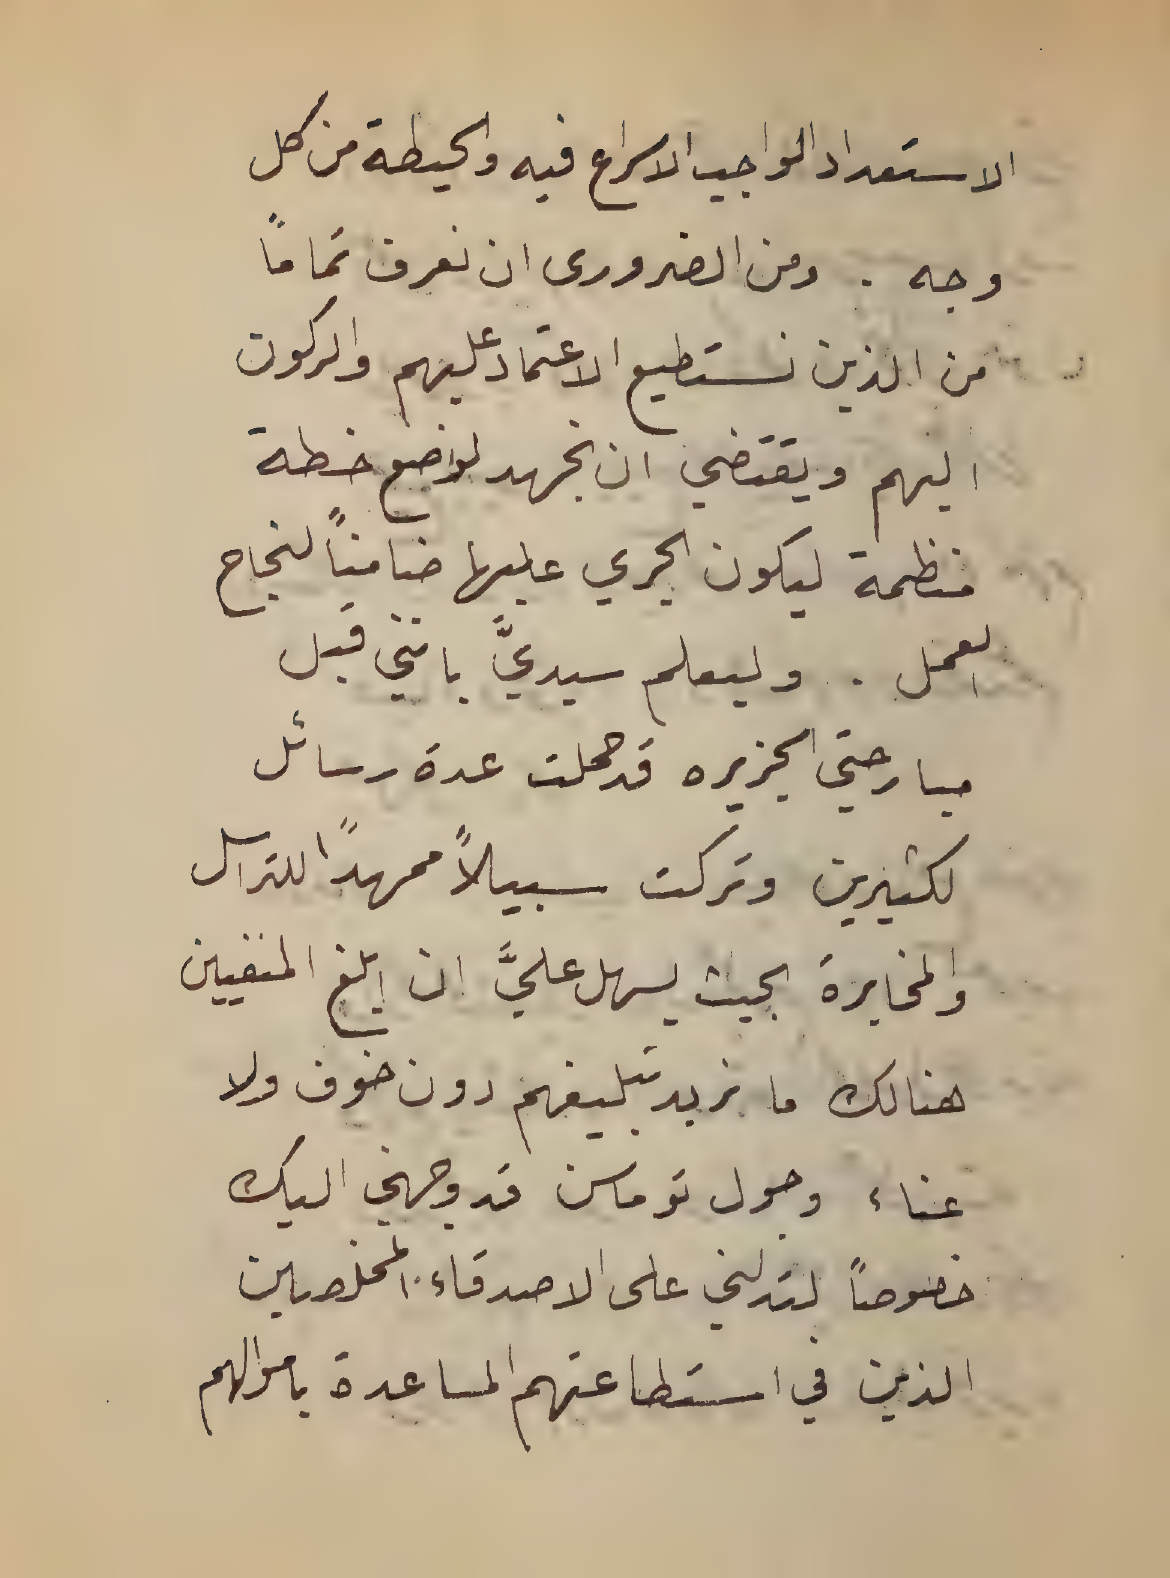 الاستعداد الواجب الاسراع فيه والحيطة من كل
وجه . ومن الضرورى ان نعرف تماماً
من الذين نستطيع الاعتماد عليهم والركون
اليهم ويقتضي ان نجهد لوضع خطة
منظمة ليكون الجري عليها ضامناً لنجاح
العمل . وليعلم سيديَّ بانني قبل
مبارحتي الجزيره قد حملت عدة رسائل
لكثيرين وتركت سبيلاً ممهداً للتراسل
والمخابرة بحيث يسهل عليَّ ان ابلغ المنفيين
هنالك ما نريد تبليغهم دون خوف ولا
عناء وجول توماسن قد وجهني اليك
خصوصاً لتدلني على الاصدقاء المخلصين
الذين في استطاعتهم المساعدة باموالهم